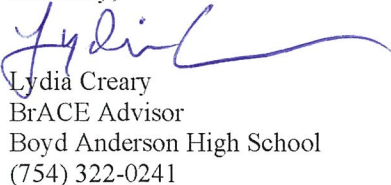 Lydia Creary
BrACE Advisor
Boyd Anderson High School
(754) 322-0241